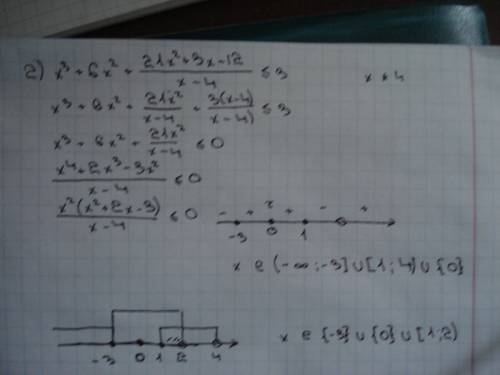 2) x³ + 6x² + (21x² + 3x - 12)/(x - 4) ≤ 3      x ≠ 4
x³ + 6x² + 21x²/(x - 4) + 3(x - 4)/(x - 4) ≤ 3
x³ + 6x² + 21x²/(x - 4) ≤ 0
(x⁴ + 2x³ - 3x²)/(x - 4) ≤ 0
x²(x² + 2x - 3)/(x - 4) ≤ 0
- + 2 + - +
-3 0 1
x ∈ (-∞; -3] ∪ [1; 4) ∪ {0}
-3 0 1 2 4
x ∈ {-3} ∪ {0} ∪ [1; 2)